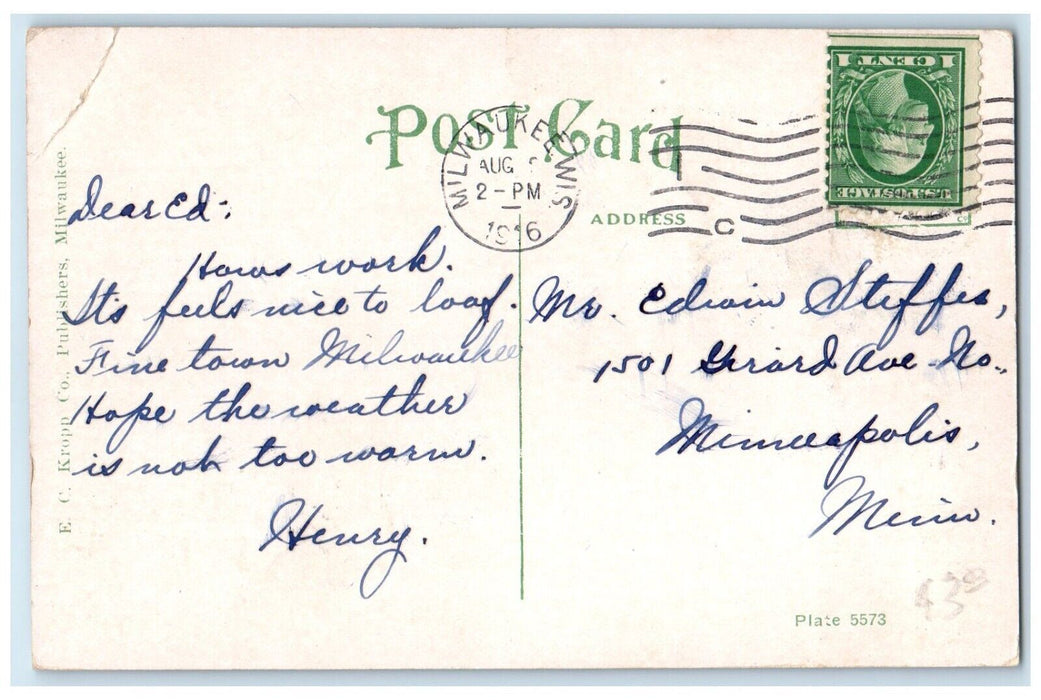 Post Card
MILWAUKEE WIS
AUG
2 - PM
1916
C
1 CENT 1
U.S. POSTAGE
ADDRESS
E. C. Kropp Co., Publishers, Milwaukee.
Dear Ed:
Hows work.
Its feels nice to loaf.
Fine town Milwaukee
Hope the weather
is not too warm.
Henry.
Mr. Edwin Steffes,
1501 Girard Ave No.,
Minneapolis,
Minn.
Plate 5573